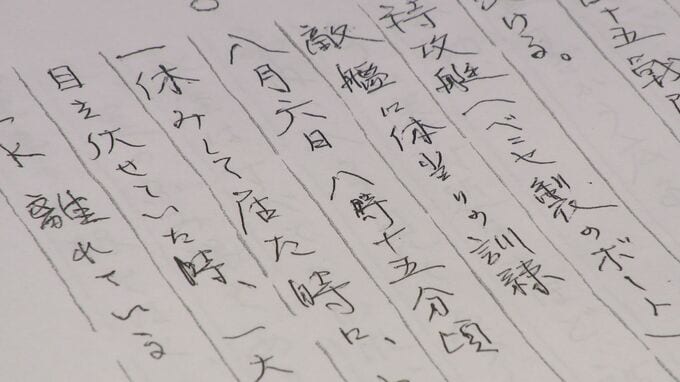 十五戦
ける。
特攻艇(ベニヤ製のボート)
敵艦に体当りの訓練
八月六日 八時十五分頃
一休みして居た時に、
目を伏せていた時、一大
離れている